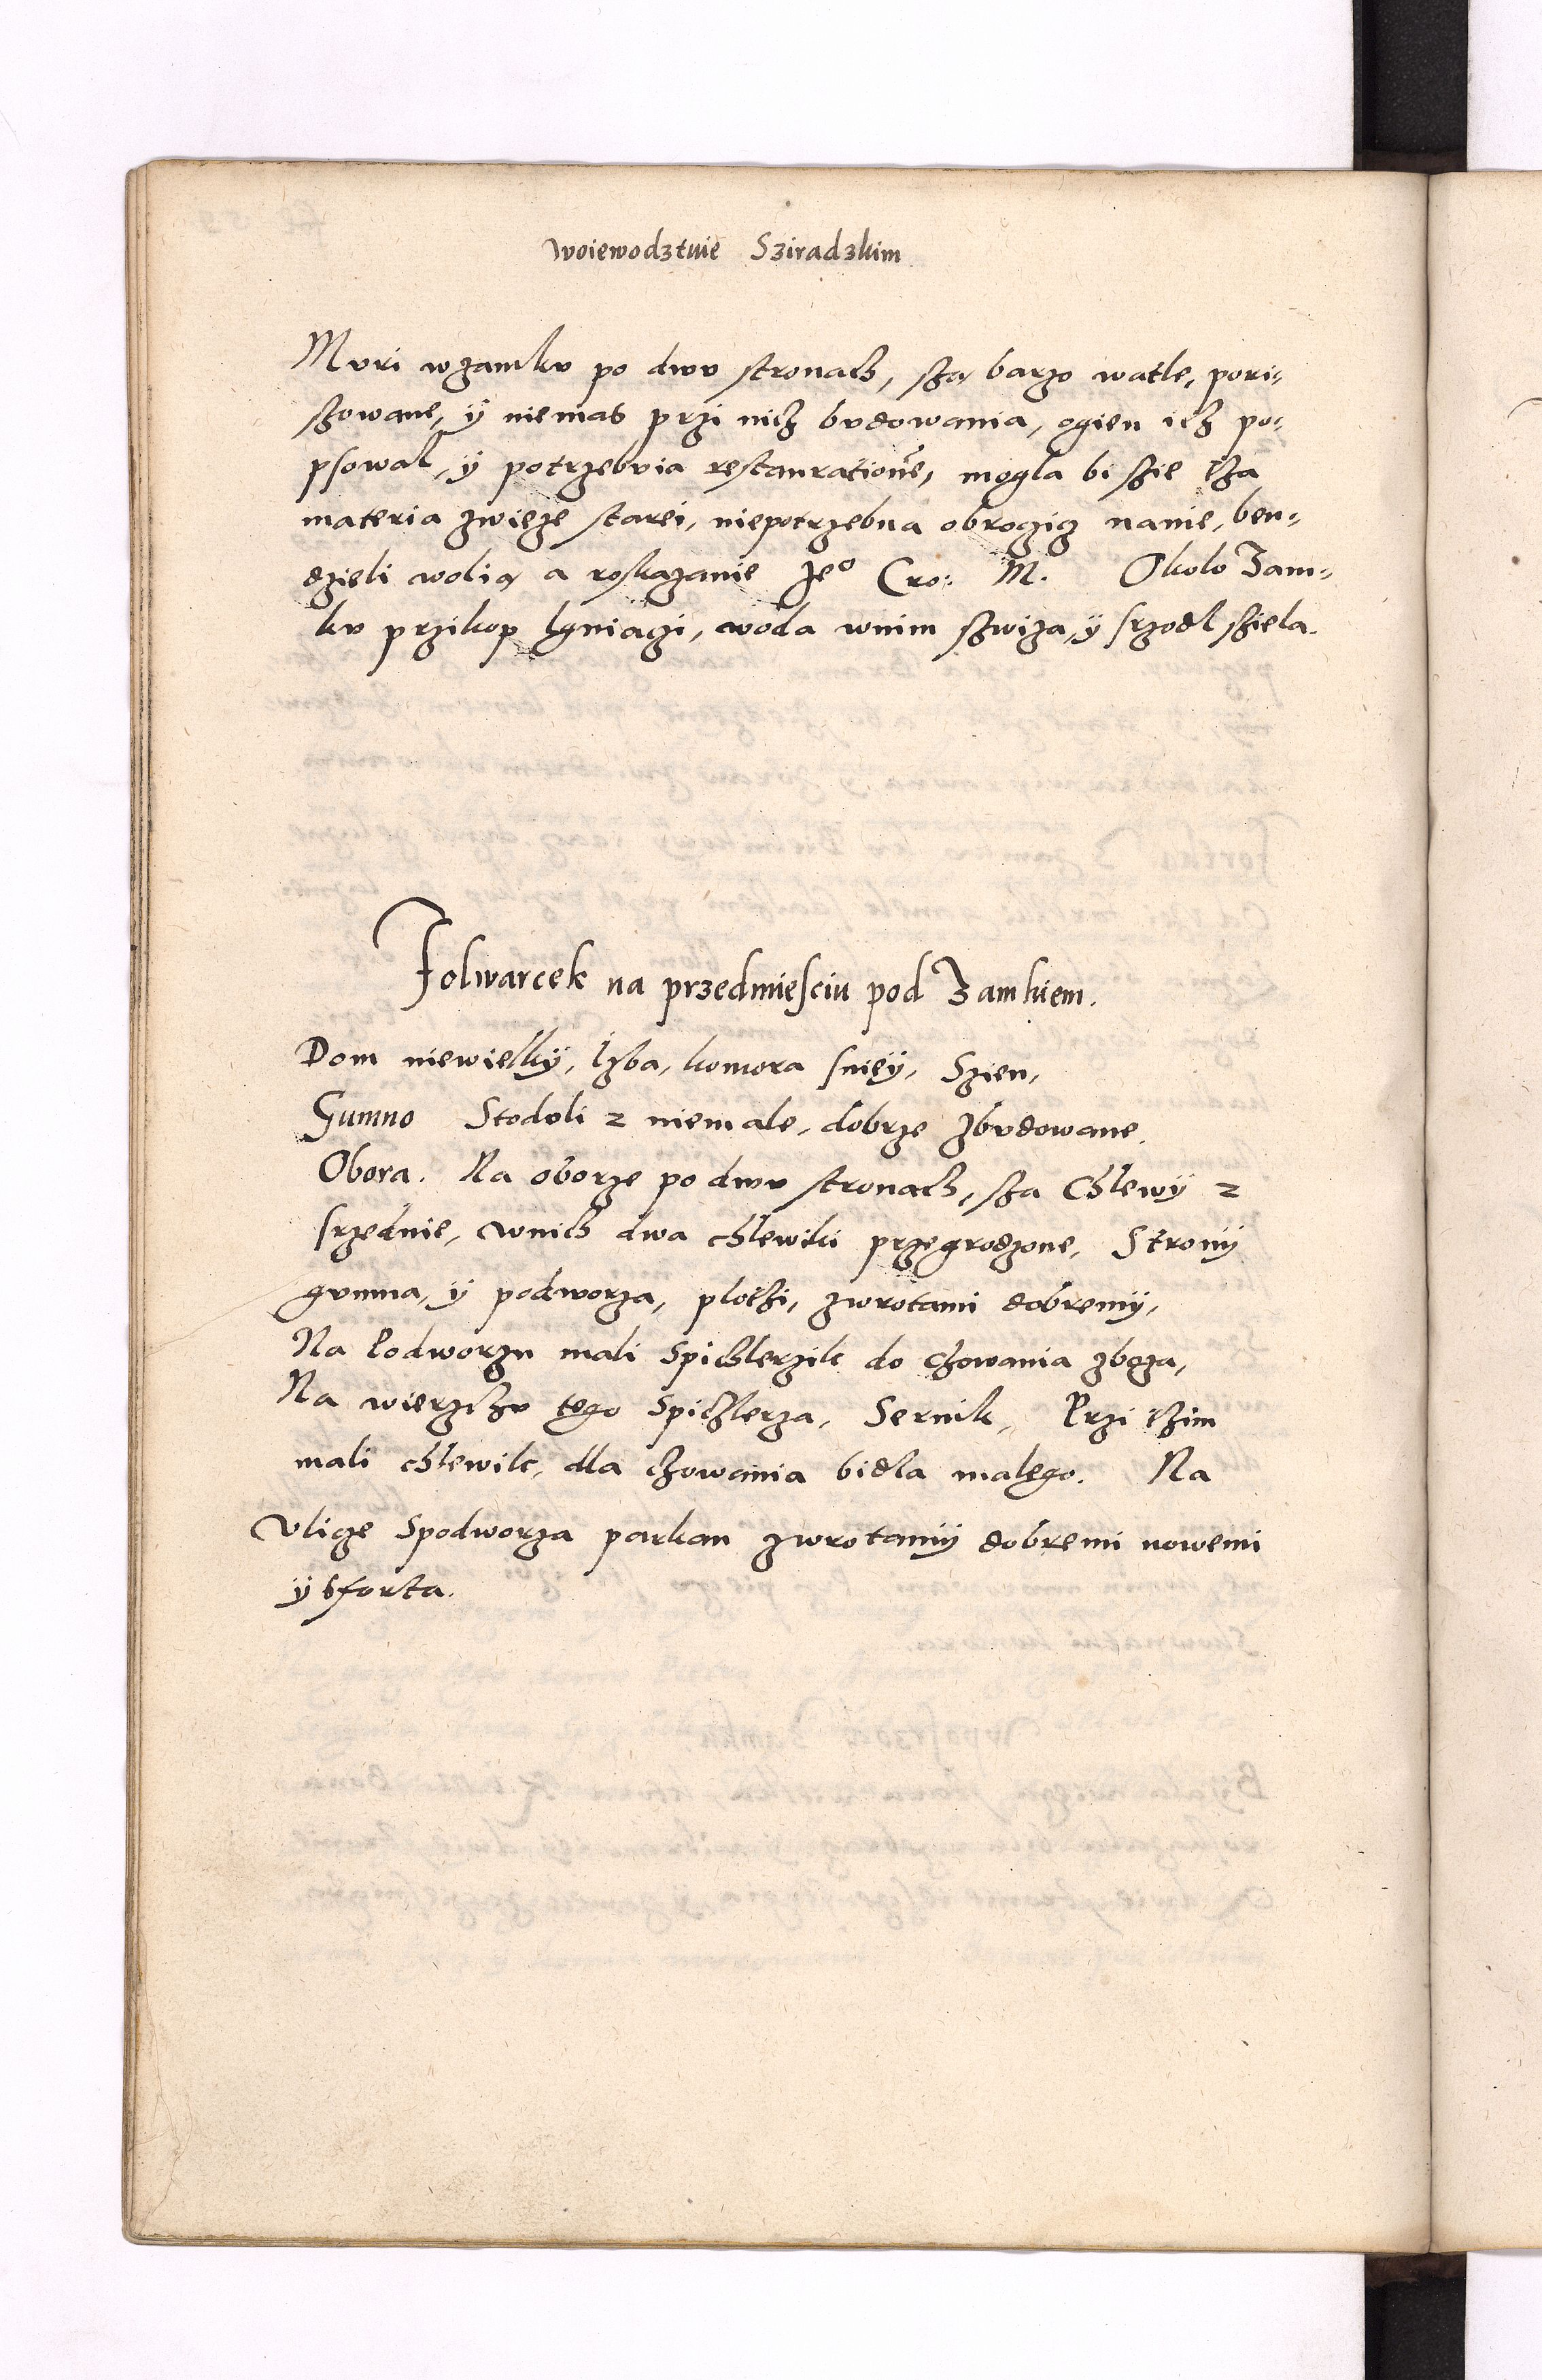 Woiewodztwie Sziradzkim
Mvri wzamkv po dwv stronach, sza barzo watle, pori-
szowane, ÿ niemas przi nich bvdowania, ogien ich po-
psowal, ÿ potrzebvia restaurationē, mogla bi szie tha
materia zwieze starei, niepotrzebna obroczicz nanie, ben-
dzieli wolia a roskazanie Jeº Cro: M. Okolo Zam-
kv przikop lgniaczi, woda wnim szwiza, ÿ srzodl sziela.
Folwarcek na przedmiesciu pod Zamkiem.
Dom niewielkÿ, Izba, komora sniëÿ, Szien,
Gumno Stodoli 2 niemale, dobrze zbvdowane.
Obora. Na oborze po dwv stronach, sza Chlewÿ 2
srzednie, wnich dwa chlewiki przegrodzone, Stronÿ
gvmna, ÿ podworza, plothi, zwrotami dobremÿ,
Na Podworzu mali Spichlerzik do chowania zboza,
Na wierzchv tego Spichlerza, Sernik, Przi thim
mali chlewik, dla chowania bidla malego. Na
Vlicze Spodworza parkan zwrotamÿ dobremi nowemi
ÿ sforta.